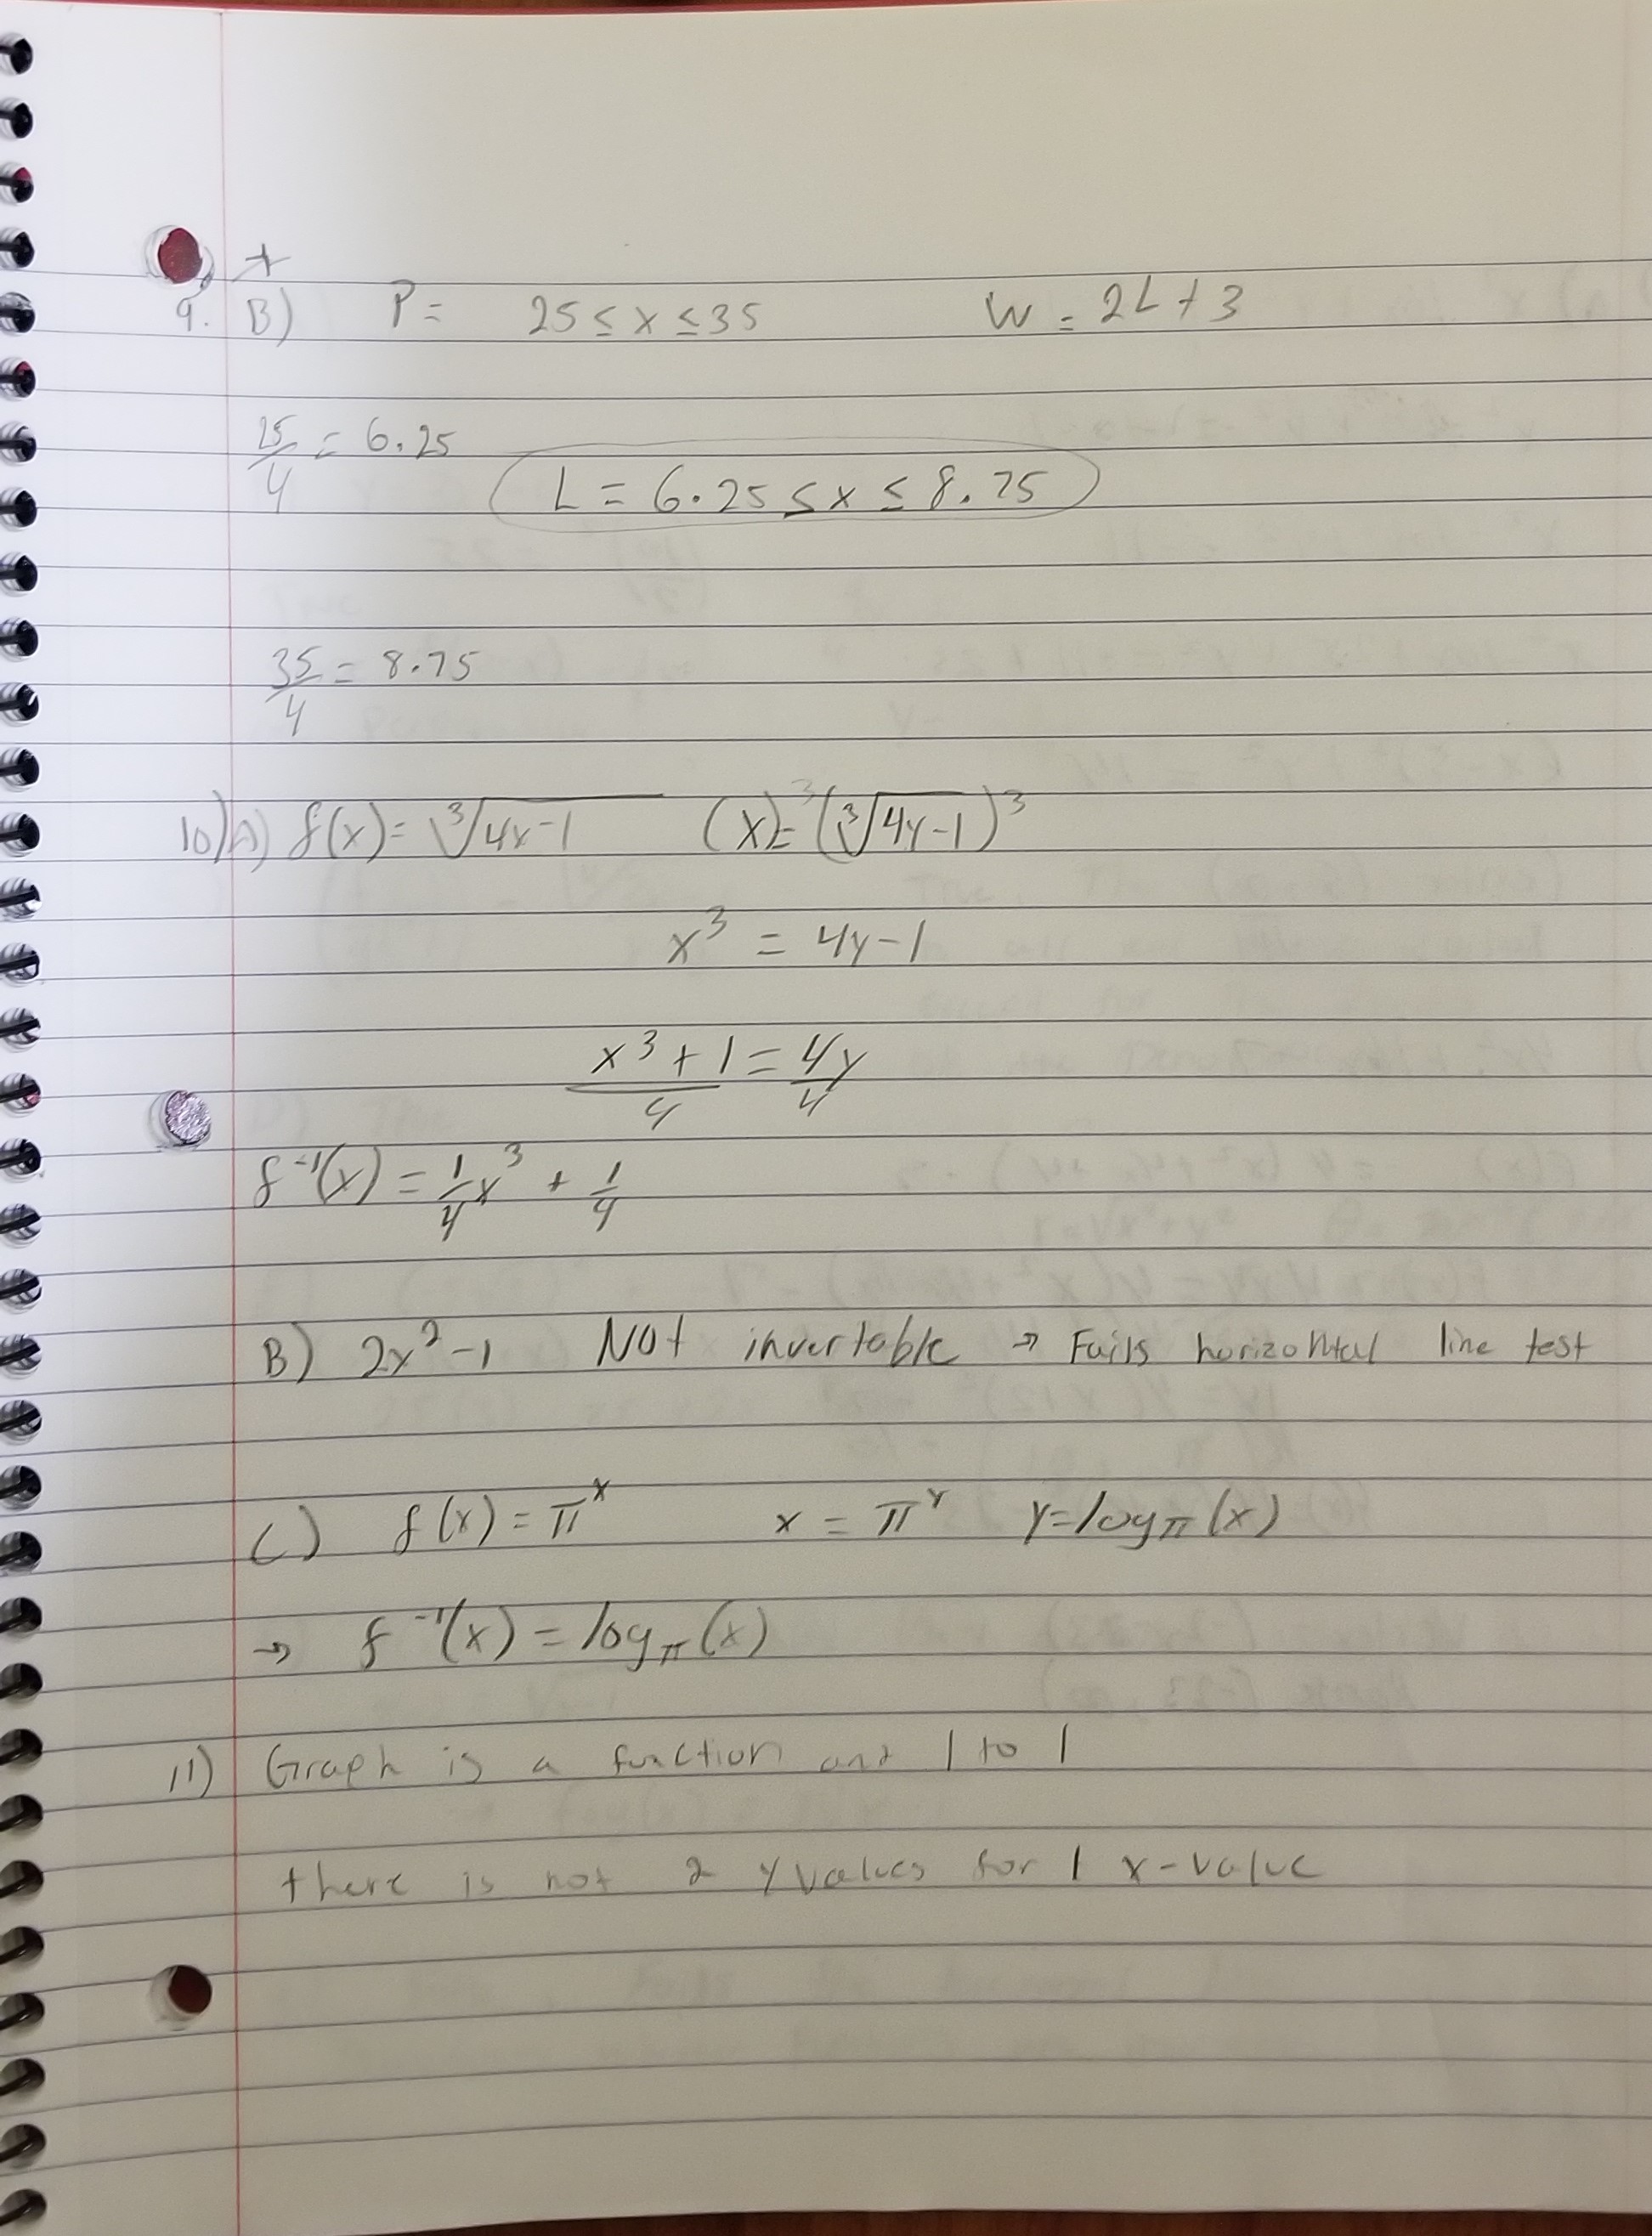 9. B) P = 25 ≤ x ≤ 35 W = 2L + 3
25/4 = 6.25
L = 6.25 ≤ x ≤ 8.75
35/4 = 8.75
10) A) f(x) = ∛(4x-1) (x)³ = (∛(4y-1))³
x³ = 4y-1
(x³ + 1)/4 = 4y/4
f⁻¹(x) = 1/4 x³ + 1/4
B) 2x² - 1 Not invertable → Fails horizontal line test
C) f(x) = π^x x = π^y y = log_π(x)
→ f⁻¹(x) = log_π(x)
11) Graph is a function and 1 to 1
there is not 2 y values for 1 x-value